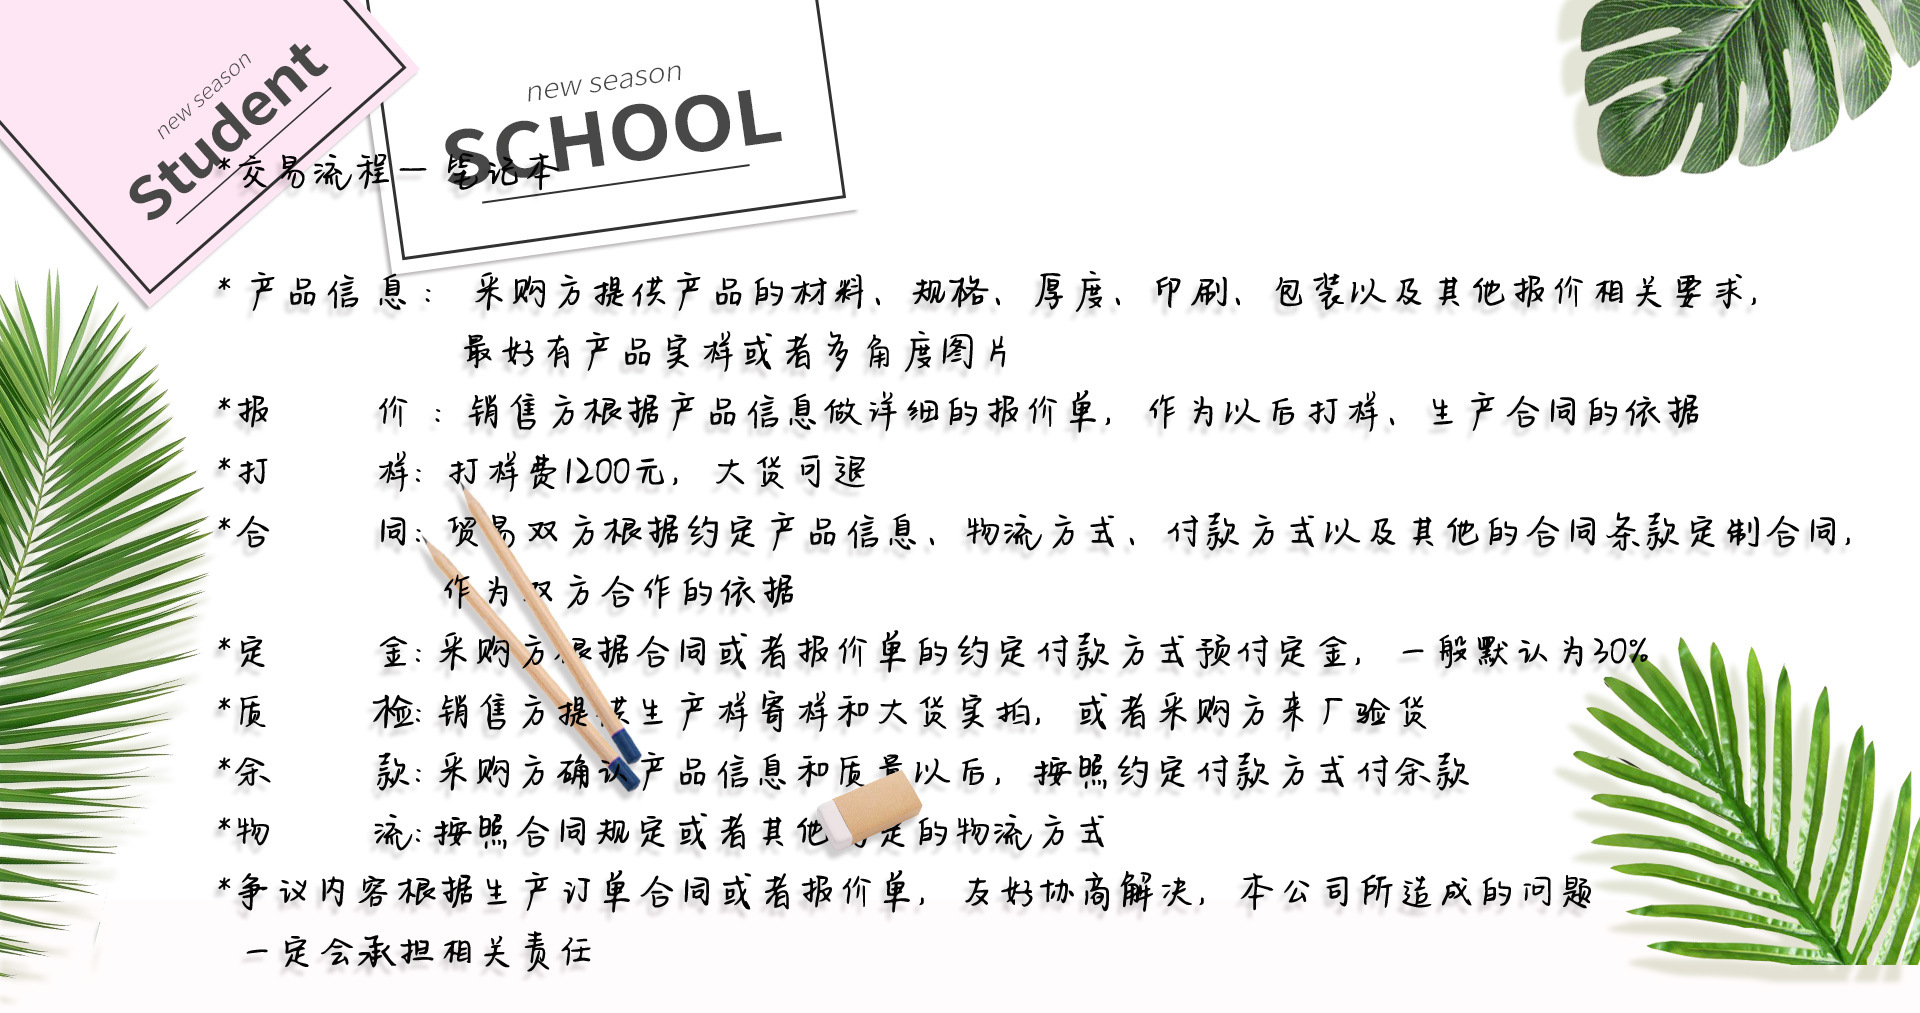 new season
Student
new season
SCHOOL
*交易流程一 笔记本
* 产品信息： 采购方提供产品的材料、规格、厚度、印刷、包装以及其他报价相关要求，
最好有产品实样或者多角度图片
*报 价 ：销售方根据产品信息做详细的报价单，作为以后打样、生产合同的依据
*打 样：打样费1200元，大货可退
*合 同：贸易双方根据约定产品信息、物流方式、付款方式以及其他的合同条款定制合同，
作为双方合作的依据
*定 金：采购方根据合同或者报价单的约定付款方式预付定金，一般默认为30%
*质 检：销售方提供生产样寄样和大货实拍，或者采购方来厂验货
*余 款：采购方确认产品信息和质量以后，按照约定付款方式付余款
*物 流：按照合同规定或者其他约定的物流方式
*争议内容根据生产订单合同或者报价单，友好协商解决，本公司所造成的问题
一定会承担相关责任